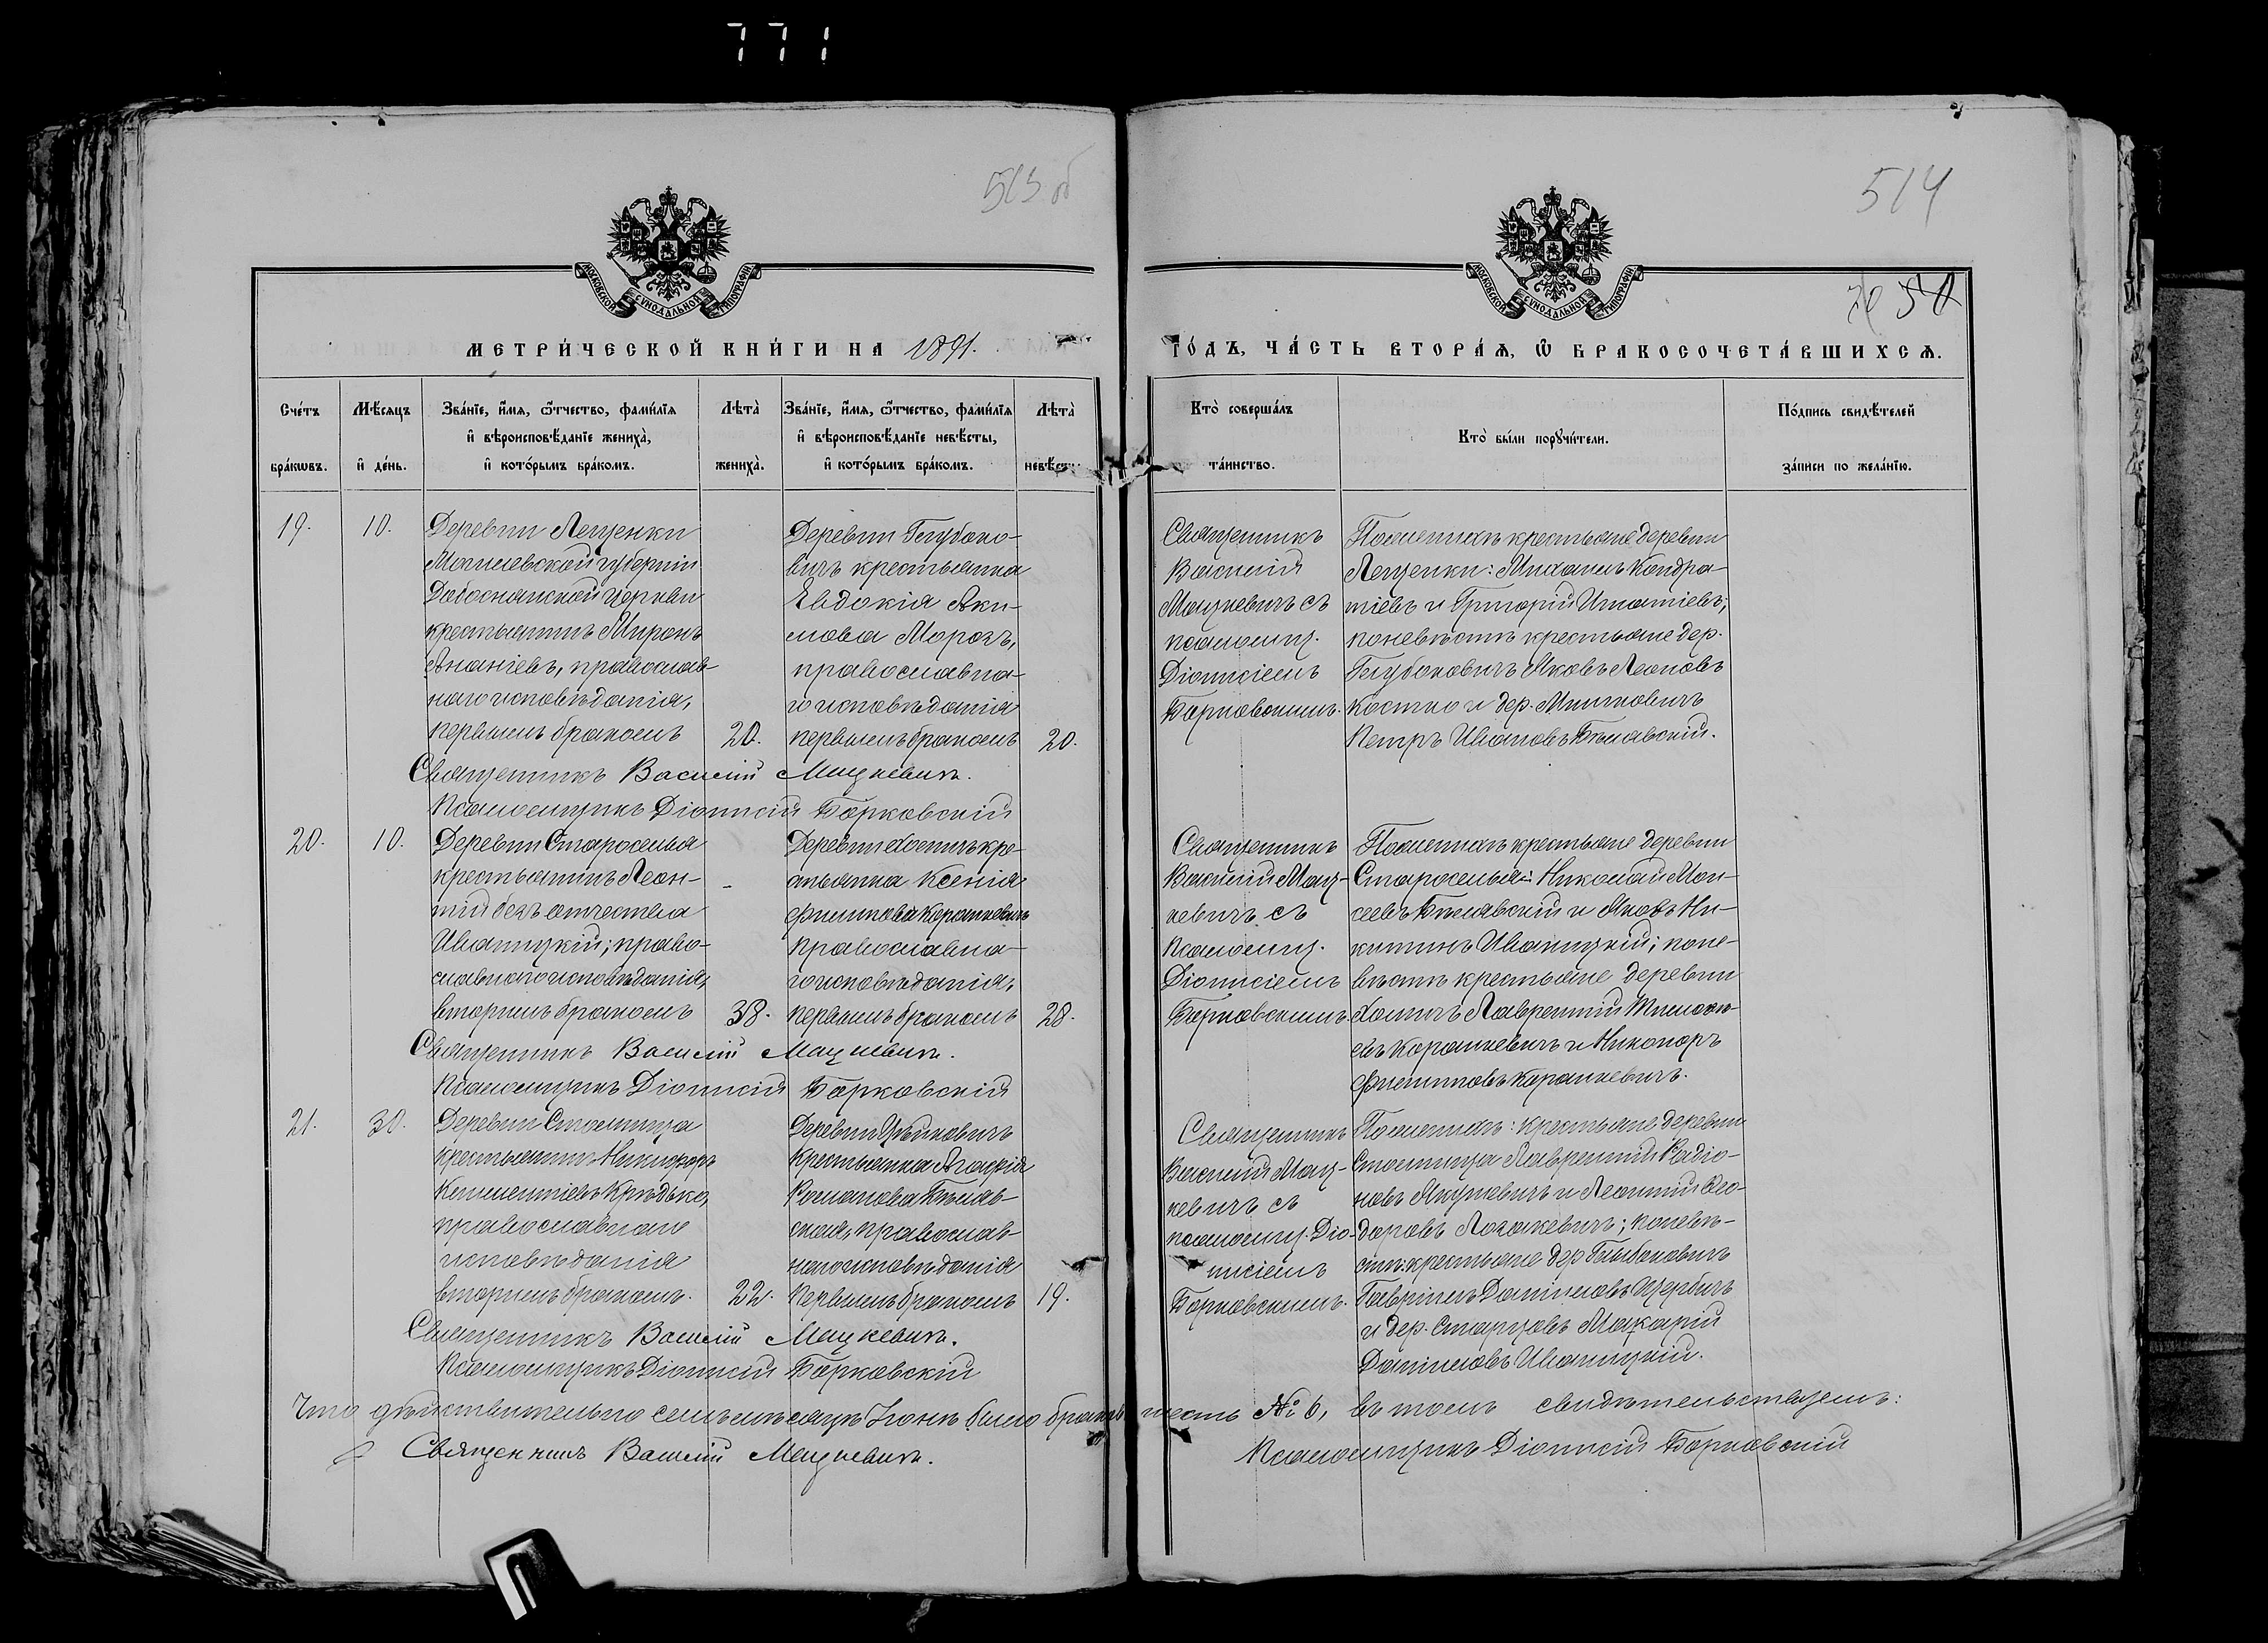 771
513 об
514
МОСКОВСКОЙ СѴНОДАЛЬНОЙ ТИПОГРАФІИ
МОСКОВСКОЙ СѴНОДАЛЬНОЙ ТИПОГРАФІИ
МЕТРИ́ЧЕСКОЙ КНИ́ГИ НА 1891.
ГО́ДЪ, ЧА́СТЬ ВТОРА́Ѧ, Ѡ҆ БРАКОСОЧЕТА́ВШИХСѦ.
Сче́тъ бра́кѡвъ.
Мѣ́сѧцъ и҆ де́нь.
Зва́нїе, и҆́мѧ, ѻ҆́тчество, фами́лїѧ и҆ вѣроисповѣ́данїе жениха̀, и҆ кото́рымъ бра́комъ.
Лѣта̀ жениха̀.
Зва́нїе, и҆́мѧ, ѻ҆́тчество, фами́лїѧ и҆ вѣроисповѣ́данїе невѣ́сты, и҆ кото́рымъ бра́комъ.
Лѣта̀
Кто̀ соверша́лъ та́инство.
Кто̀ бы́ли порꙋчи́тели.
По́дпись свидѣ́телей за́писи по жела́нїю.
19.
10.
Деревни Лещенки
Могилевской губерніи
Добоснянской церкви
крестьянинъ Миронъ
Ананіевъ, православ-
наго исповѣданія,
первымъ бракомъ
20.
Деревни Глубоко-
вичъ крестьянка
Евдокія Яки-
мова Морозъ,
православна-
го исповѣданія
первымъ бракомъ
20.
Священникъ
Василій
Мацкевичъ съ
псаломщ.
Діонисіемъ
Борковскимъ.
По женихѣ крестьяне деревни
Лещенки: Михаилъ Кондра-
тіевъ и Григорій Игнатіевъ;
по невѣстѣ крестьяне дер.
Глубоковичъ Яковъ Леоновъ
Костко и дер. Мышковичъ
Петръ Ивановъ Бѣлявскій.
Священникъ Василій Мацкевичъ.
Псаломщикъ Діонисій Борковскій
20.
10.
Деревни Староселья
крестьянинъ Леон-
тій безъ отчества
Иваницкій; право-
славнаго исповѣданія,
вторымъ бракомъ
38.
Деревни Хомичъ кре-
стьянка Ксенія
Филиппова Корашкевичъ
православна-
го исповѣданія,
первымъ бракомъ
28.
Священникъ
Василій Мац-
кевичъ съ
псаломщ.
Діонисіемъ
Борковскимъ.
По женихѣ крестьяне деревни
Староселья: Николай Мои-
сеевъ Бѣлявскій и Яковъ Ни-
китинъ Иваницкій; по не-
вѣстѣ крестьяне деревни
Хомичъ Лаврентій Тимоѳе-
евъ Корашкевичъ и Никоноръ
Филипповъ Корашкевичъ.
Священникъ Василій Мацкевичъ.
Псаломщикъ Діонисій Борковскій
21.
30.
Деревни Столпища
крестьянинъ Никифоръ
Климентіевъ Крѣдько,
православнаго
исповѣданія
вторымъ бракомъ.
22.
крестьянка Агафія
Романова Бѣляв-
ская, православ-
наго исповѣданія
первымъ бракомъ
19.
Священникъ
Василій Мац-
кевичъ съ
псаломщ. Діо-
нисіемъ
Борковскимъ.
По женихѣ: крестьяне деревни
Столпища Лаврентій Радіо-
новъ Янушевичъ и Леонтій Ѳео-
доровъ Логажевичъ; по невѣ-
стѣ: крестьяне дер. Глыбоковичъ
Гавріилъ Даніиловъ Щербичъ
и дер. Старцовъ Макарій
Даніиловъ Иваницкій.
Священникъ Василій Мацкевичъ.
Псаломщикъ Діонисій Борковскій
Что дѣйствительно въ семъ мѣсяцѣ Іюнѣ было браковъ шесть № 6, въ томъ свидѣтельствуемъ:
Священникъ Василій Мацкевичъ.
Псаломщикъ Діонисій Борковскій